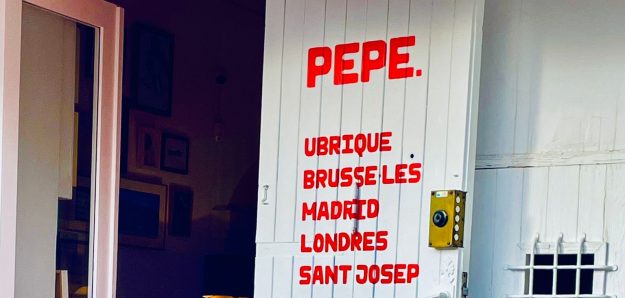 PEPE.
UBRIQUE
BRUSSE·LES
MADRID
LONDRES
SANT JOSEP